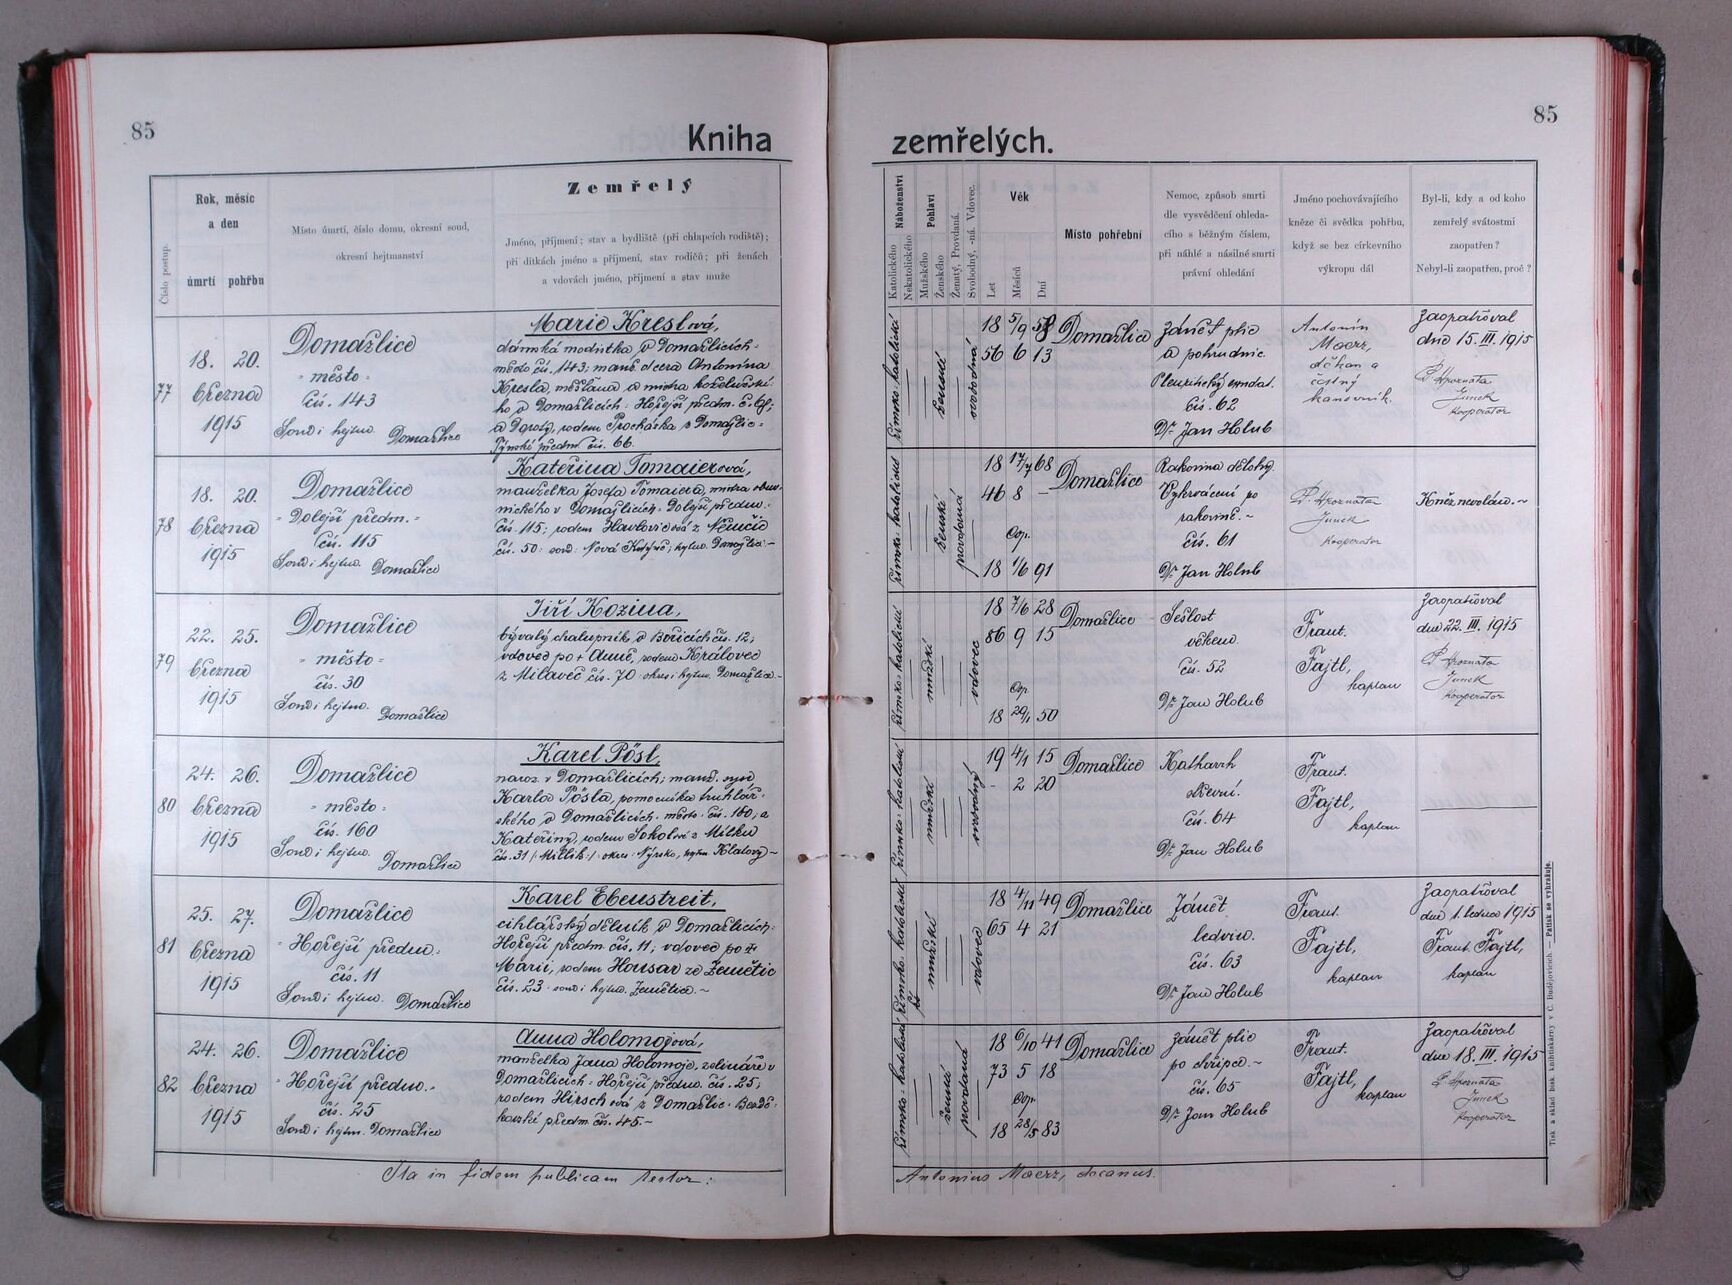 85
Kniha
Číslo postup.
Rok, měsíc
a den
úmrtí pohřbu
Místo úmrtí, číslo domu, okresní soud,
okresní hejtmanství
Zemřelý
Jméno, příjmení; stav a bydliště (při chlapcích rodiště);
při dítkách jméno a příjmení, stav rodičů; při ženách
a vdovách jméno, příjmení a stav muže
77
18. 20.
března
1915
Domažlice
- město -
čís. 143
Soud i hejtm. Domažlice
Marie Kreslová,
dámská modistka v Domažlicích -
město čís. 143; manž. dcera Antonína
Kresla, měšťana a mistra koželužské-
ho v Domažlicích: Hořejší předm.
rodem Procházka z Domažlic -
předm. čís. 66.
78
18. 20.
března
1915
Domažlice
- Dolejší předm. -
čís. 115
Soud i hejtm. Domažlice
Kateřina Tomaierová,
manželka Josefa Tomaiera, mistra obuv-
nického v Domažlicích: Dolejší předm.
čís. 115; rodem z Němčic
čís. 50: soud: Nová Kdyně; hejtm. Domažlice -
79
22. 25.
března
1915
Domažlice
- město -
čís. 30
Soud i hejtm. Domažlice
Jiří Kozina,
bývalý chalupník v Bořicích čís. 12;
vdovec po + Anně, rodem Královec
z Milaveč čís. 70: okres i hejtm. Domažlice -
80
24. 26.
března
1915
Domažlice
- město -
čís. 160
Soud i hejtm. Domažlice
Karel Pösl,
naroz. v Domažlicích; manž. syn
Karla Pösla, pomocníka truhlář-
ského v Domažlicích: město: čís. 160; a
Kateřiny, rodem Sokol z Milku
čís. 31 /: Millik :/ okres: Nýrsko, hejtm. Klatovy -
81
25. 27.
března
1915
Domažlice
- Hořejší předm. -
čís. 11
Soud i hejtm. Domažlice
Karel Ebenstreit,
cihlářský dělník v Domažlicích:
Hořejší předm. čís. 11; vdovec po +
Marii, rodem Housar ze Zemětic
čís. 23: soud i hejtm.
82
24. 26.
března
1915
Domažlice
- Hořejší předm. -
čís. 25
Soud i hejtm. Domažlice
Anna Holomojová,
manželka Jana Holomoje, zelináře v
Domažlicích: Hořejší předm. čís. 25;
rodem Hirschová z Domažlic:
předm. čís. 45. -
Ita in fidem publicam testor:
85
zemřelých.
Náboženství
Katolického
Nekatolického
Pohlaví
Mužského
Ženského
Ženatý, Provdaná.
Svobodný, -ná. Vdovec.
Věk
Let
Měsíců
Dní
Místo pohřební
Nemoc, způsob smrti
dle vysvědčení ohleda-
cího s běžným číslem,
při náhlé a násilné smrti
právní ohledání
Jméno pochovávajícího
kněze či svědka pohřbu,
když se bez církevního
výkropu dál
Byl-li, kdy a od koho
zemřelý svátostmi
zaopatřen?
Nebyl-li zaopatřen, proč?
římsko-katolické
ženské
svobodná
18 5/9 58
56 6 13
Domažlice
Zánět plic
a pohrudnice.
čís. 62
Dr. Jan Holub
Antonín
Maerz,
děkan a
čestný
kanovník.
Zaopatřoval
dne 15. III. 1915
P. Hroznata
Junek
kooperator
ženské
provdaná
18 17/7 68
46 8 -
Cop.
18 1/6 91
Domažlice
Rakovina dělohy.
Vykrvácení po
rakovině. -
čís. 61
Dr. Jan Holub
P. Hroznata
Junek
kooperator
Kněz nevolán. -
římsko-katolické
mužské
vdovec
18 7/6 28
86 9 15
Cop.
18 29/1 50
Domažlice
Sešlost
věkem.
čís. 52
Dr. Jan Holub
Frant.
Fajtl,
kaplan
Zaopatřoval
dne 22. III. 1915
P. Hroznata
Junek
kooperator
římsko-katolické
mužské
svobodný
19 4/1 15
- 2 20
Domažlice
Katharrh
střevní.
čís. 64
Dr. Jan Holub
Frant.
Fajtl,
kaplan
římsko-katolické
mužské
vdovec
18 4/11 49
65 4 21
Domažlice
Zánět
ledvin.
čís. 63
Dr. Jan Holub
Frant.
Fajtl,
kaplan
Zaopatřoval
dne 1. ledna 1915
Frant. Fajtl,
kaplan
římsko-katolické
ženské
provdaná
18 6/10 41
73 5 18
Cop.
18 28/5 83
Domažlice
Zánět plic
po chřipce. -
čís. 65
Dr. Jan Holub
Frant.
Fajtl,
kaplan
Zaopatřoval
dne 18. III. 1915
P. Hroznata
Junek
kooperator
Antonius Maerz, decanus.
Tisk a sklad bisk. knihtiskárny v Č. Budějovicích. — Patisk se vyhražuje.